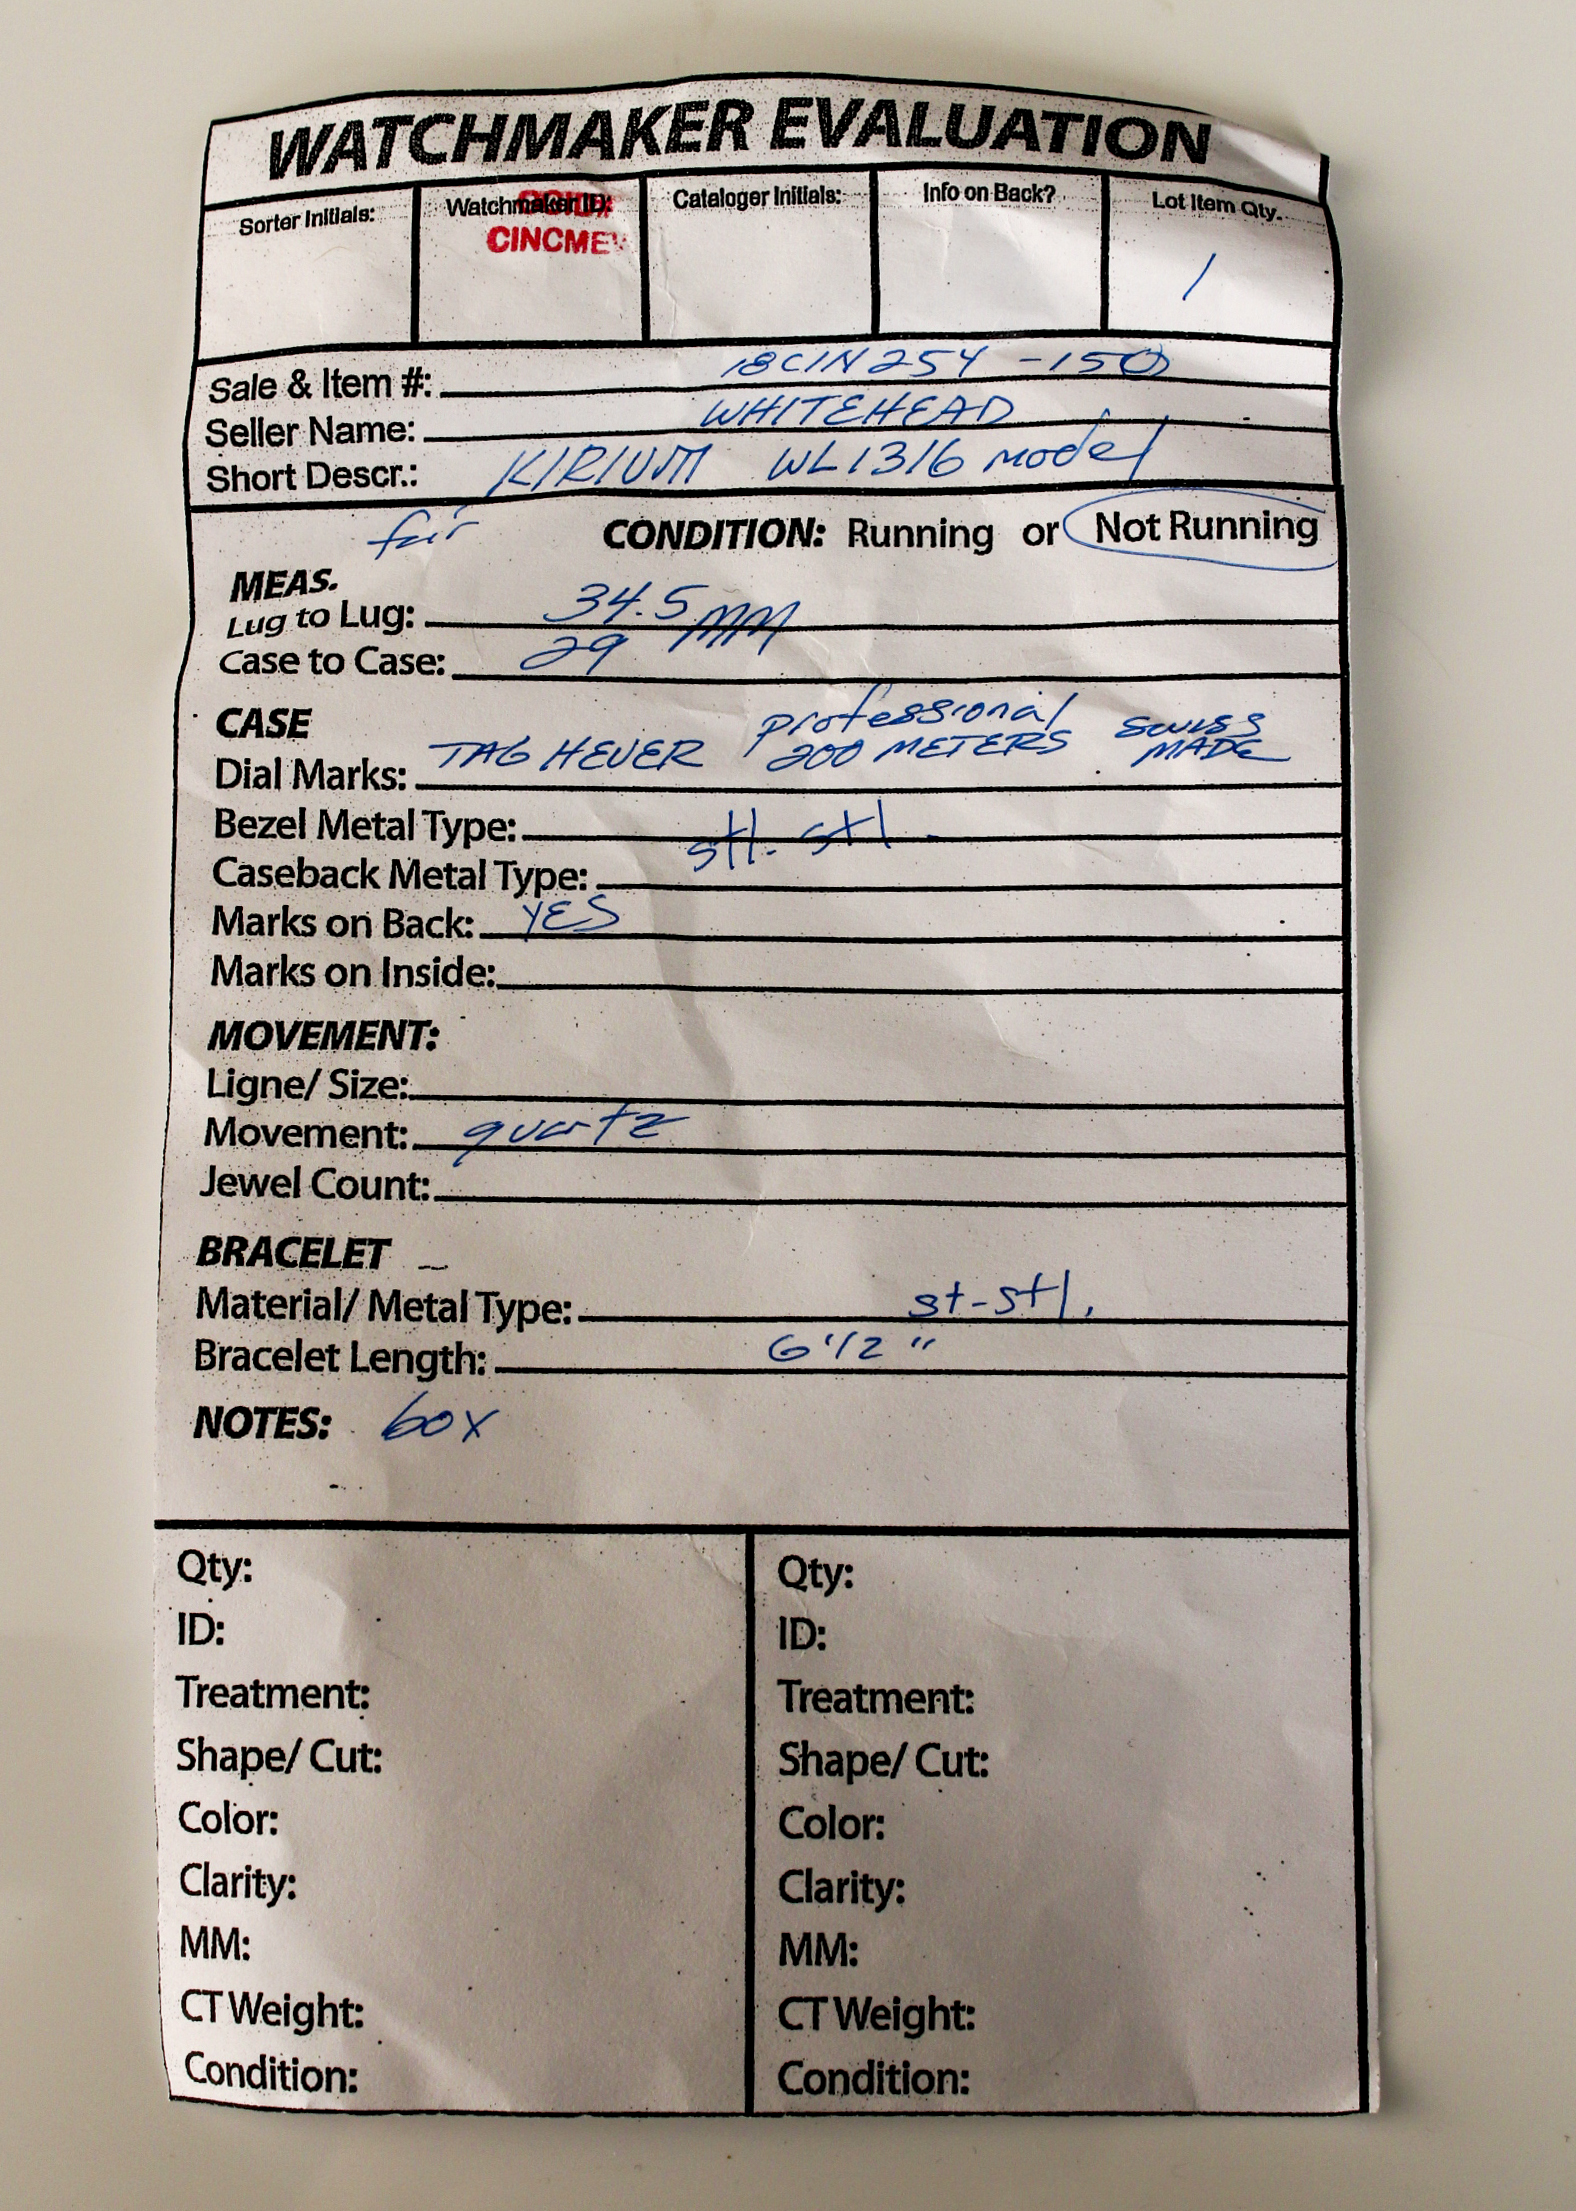 WATCHMAKER EVALUATION
Sorter Initials: Watchmaker ID: Cataloger Initials: Info on Back? Lot Item Qty.
CINCME
1
Sale & Item #: 18CIN254-150
Seller Name: WHITEHEAD
Short Descr.: KIRIUM WL1316 model
fair CONDITION: Running or Not Running
MEAS.
Lug to Lug: 34.5 MM
Case to Case: 29
CASE professional SWISS
Dial Marks: TAG HEUER 200 METERS MADE
Bezel Metal Type: stl. stl.
Caseback Metal Type:
Marks on Back: YES
Marks on Inside:
MOVEMENT:
Ligne/ Size:
Movement: quartz
Jewel Count:
BRACELET
Material/ Metal Type: st-stl.
Bracelet Length: 6 1/2"
NOTES: box
Qty: Qty:
ID: ID:
Treatment: Treatment:
Shape/ Cut: Shape/ Cut:
Color: Color:
Clarity: Clarity:
MM: MM:
CT Weight: CT Weight:
Condition: Condition: